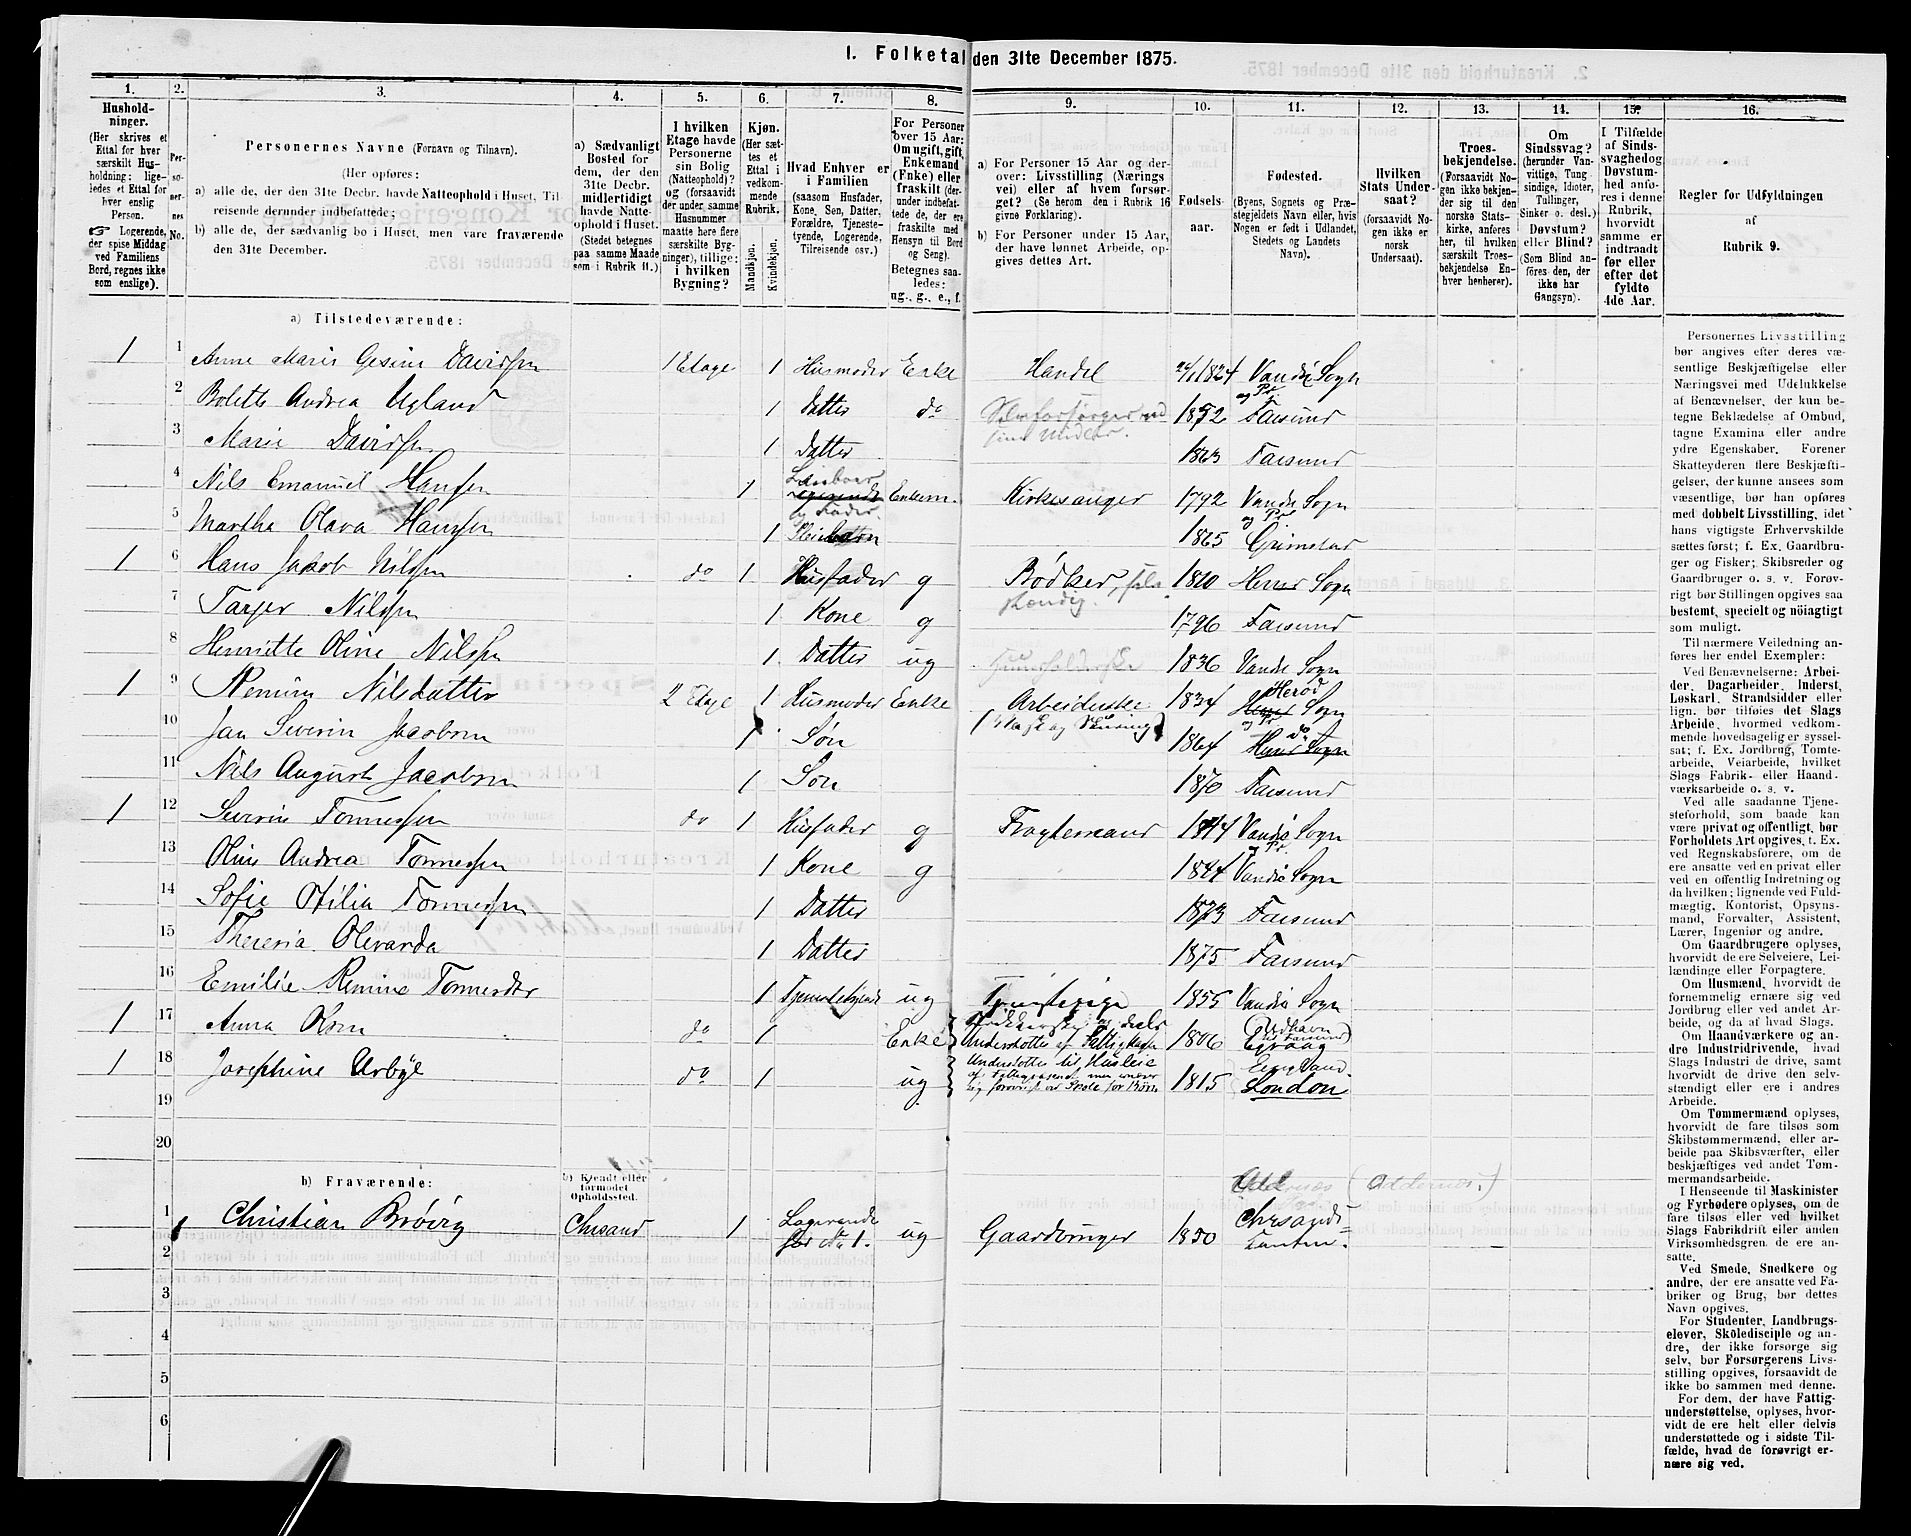 I. Folketal den 31te December 1875.
1. 2. 3. 4. 5. 6. 7. 8. 9. 10. 11. 12. 13. 14. 15. 16.
Hushold-
ninger.
(Her skrives et
Ettal for hver
særskilt Hus-
holdning: lige-
ledes et Ettal for
hver enslig
Person.
☞ Logerende,
der spise Middag
ved Familiens
Bord, regnes ikke
som enslige).
Per-
so-
ner-
nes
No.
Personernes Navne (Fornavn og Tilnavn).
(Her opføres:
a) alle de, der den 31te Decbr. havde Natteophold i Huset, Til-
reisende derunder indbefattede;
b) alle de, der sædvanlig bo i Huset, men vare fraværende
den 31te December.
a) Sædvanligt
Bosted for
dem, der den
31te Decbr.
midlertidigt
havde Natte-
ophold i Huset.
(Stedet betegnes
paa samme Maade
som i Rubrik 11.)
I hvilken
Etage havde
Personerne
sin Bolig
(Natteophold)?
og (forsaavidt
der under samme
Husnummer
maatte høre flere
særskilte Byg-
ninger), tillige:
i hvilken
Bygning?
Kjøn.
(Her sæt-
tes et
Ettal i
vedkom-
mende
Rubrik.
Mandkjøn.
Kvindekjøn.
Hvad Enhver er
i Familien
(saasom Husfader,
Kone, Søn, Datter,
Forældre, Tjeneste-
tyende, Logerende,
Tilreisende osv.)
For Personer
over 15 Aar:
Om ugift, gift,
Enkemand
(Enke) eller
fraskilt (der-
under indbefat-
tede de, der ere
fraskilte med
Hensyn til Bord
og Seng).
Betegnes saa-
ledes:
ug., g., e., f.
a) For Personer 15 Aar og der-
over: Livsstilling (Nærings
vei) eller af hvem forsør-
get? (Se herom den i Rubrik 16
givne Forklaring).
b) For Personer under 15 Aar,
der have lønnet Arbeide, op-
gives dettes Art.
Fødsels-
aar.
Fødested.
(Byens, Sognets og Præ-
stegjeldets Navn eller, hvis
Nogen er født i Udlandet,
Stedets og Landets
Navn).
Hvilken
Stats Under-
saat?
(forsaavidt No-
gen ikke er
norsk
Undersaat).
Troes-
bekjendelse.
(Forsaavidt No-
gen ikke bekjen-
der sig til den
norske Stats-
kirke, anføres
her, til hvilken
særskilt Troes-
bekjendelse En-
hver henhører).
Om
Sindssvag?
(herunder Van-
vittige, Tung
sindige, Idioter,
Tullinger,
Sinker o. desl.)
Døvstum?
eller Blind?
(Som Blind an-
føres den, der
ikke har
Gangsyn).
I Tilfælde
af Sinds-
svaghed og
Døvstum-
hed anfø-
res i denne
Rubrik,
hvorvidt
samme er
indtraadt
før eller
efter det
fyldte
4de Aar.
Regler for Udfyldningen
af
Rubrik 9.
a) Tilstedeværende:
1 1 Anne Marie Gesine Davidsen 1 Etage 1 Husmoder Enke Handel 1824 Vandsø Sogn og Pr
2 Bolette Andrea Ugland 1 Datter do 1852 Farsund
3 Marie Davidsen 1 Datter 1863 Farsund
4 Nils Emanuel Hansen 1 Fader Enkem. Kirkesanger 1792 Vandsø Sogn og Pr
5 Martha Olava Hansen 1 Pleiebarn 1865 Grimstad
1 6 Hans Jakob Nilsen do 1 Husfader g Bødker 1810 Sogn
7 Tarjer Nilsen 1 Kone g 1796 Farsund
8 Henriette Oline Nilsen 1 Datter ug 1836 Vandsø Sogn
1 9 Remine Nilsdatter 2 Etage 1 Husmoder Enke Arbeiderske (Vask og Skuring) 1834 Herød Sogn og Pr
10 Jan Severin Jacobsen 1 Søn 1864 do
11 Nils August Jacobsen 1 Søn 1870 Farsund
1 12 Severin Tønnesen do 1 Husfader g Fragtemand 1844 Vandsø Sogn og Pr
13 Oline Andrea Tønnesen 1 Kone g 1844 Vandsø Sogn
14 Sofie Otilia Tønnesen 1 Datter 1873 Farsund
15 Theresia Olevarda 1 Datter 1875 Farsund
16 Emilie Remine Tønnesdtr 1 Tjenestetyende ug Tjenestepige 1855 Vandsø Sogn
1 17 Anna Olsen do 1 Enke Understøttes af Fattigkassen 1806
1 18 Josephine Urbye do 1 ug Understøttes til Husleie 1815 London
19
20
b) Fraværende:
b) Kjendt eller
formodet
Opholdssted.
(Oddernes.)
1 1 Christian Brøvig Chrsand 1 Logerende for No 1. ug Gaardbruger 1850 Chrsand
2
3
4
5
6
Personernes Livsstilling
bør angives efter deres væ-
sentlige Beskjæftigelse eller
Næringsvei med Udelukkelse
af Benævnelser, der kun be-
tegne Beklædelse af Ombud,
tagne Examina eller andre
ydre Egenskaber. Forener
Skatteyderen flere Beskjæfti-
gelser, der kunne ansees som
væsentlige, bør han opføres
med dobbelt Livsstilling, idet
hans vigtigste Erhvervskilde
sættes først; f. Ex. Gaardbru-
ger og Fisker; Skibsreder og
Gaardbruger o. s. v. Forøv-
rigt bør Stillingen opgives saa
bestemt, specielt og nöiagtig
som muligt.
Til nærmere Veiledning an-
føres her endel Exempler:
Ved Benævnelserne: Arbei-
der, Dagarbeider, Inderst,
Løskarl, Strandsidder eller
lign. bør tilføies det Slags
Arbeide, hvormed vedkom-
mende hovedsagelig er syssel-
sat; f. Ex. Jordbrug, Tomte-
arbeide, Veiarbeide, hvilket
Slags Fabrik- eller Haand-
værksarbeide o. s. v.
Ved alle saadanne Tjene-
steforhold, som baade kan
være privat og offentligt, bør
Forholdets Art opgives, f. Ex.
ved Regnskabsførere, om de
ere ansatte ved en privat eller
ved en offentlig Indretning og
da hvilken; lignende ved Fuld-
mægtig, Kontorist, Opsyns-
mand, Forvalter, Assistent,
Lærer, Ingeniør og andre.
Om Gaardbrugere oplyses,
hvorvidt de ere Selveiere, Lei-
lændinge eller Forpagtere.
Om Husmænd, hvorvidt de
fornemmelig ernære sig ved
Jordbrug eller ved andet Ar-
beide, og da af hvad Slags.
Om Haandværkere og an-
dre Industridrivende, hvad
Slags Industri de drive, samt
hvorvidt de drive den selv-
stændigt eller ere i andres
Arbeide.
Om Tømmermænd oplyses,
hvorvidt de fare tilsøs som
Skibstømmermænd, eller ar-
beide paa Skibsværfter, eller
beskjæftiges ved andet Tøm-
mermandsarbeide.
I Henseende til Maskinister
og Fyrbødere oplyses, om de
fare tilsøs eller ved hvilket
Slags Fabrikdrift eller anden
Virksomhedsgren de ere an-
satte.
Ved Smede, Snedkere og
andre, der ere ansatte ved Fa-
briker og Brug, bør dettes
Navn opgives.
For Studenter, Landbrugs-
elever, Skoledisciple og an-
dre, der ikke forsørge sig
selv, bør Forsørgerens Livs-
stilling opgives, forsaavidt de
ikke bo sammen med denne.
For dem, der have Fattig-
understøttelse, oplyses, hvor-
vidt de ere helt eller delvis
understøttede og i sidste Til-
fælde, hvad de forøvrigt er-
nære sig ved.